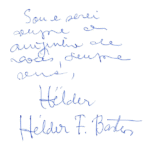 Sou e serei
sempre o
amiguinho de
vocês, sempre
seus,
Hélder
Hélder F.